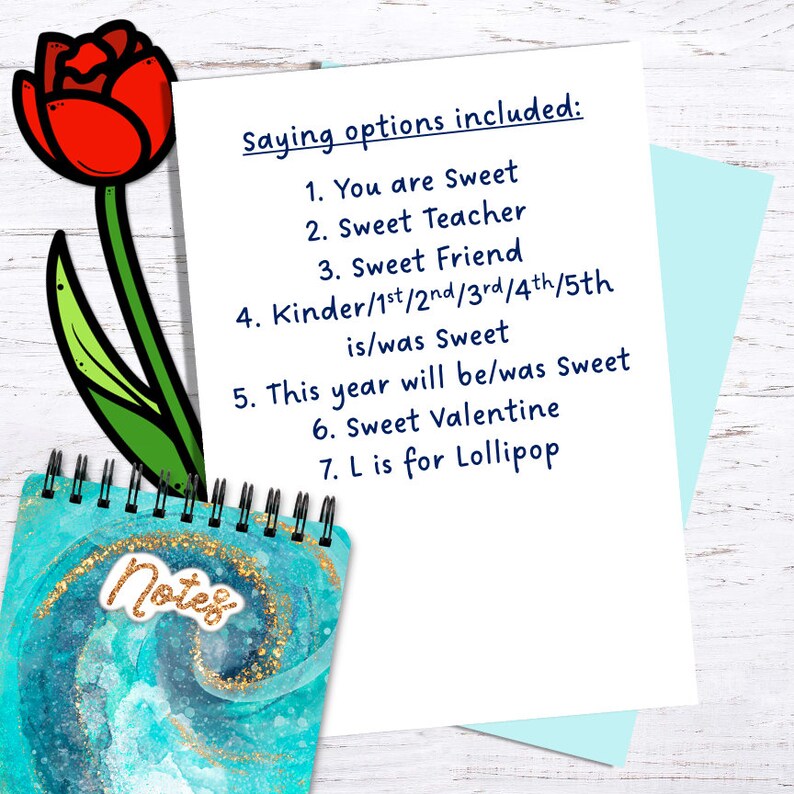 Saying options included:
1. You are Sweet
2. Sweet Teacher
3. Sweet Friend
4. Kinder/1st/2nd/3rd/4th/5th
is/was Sweet
5. This year will be/was Sweet
6. Sweet Valentine
7. L is for Lollipop
Notes